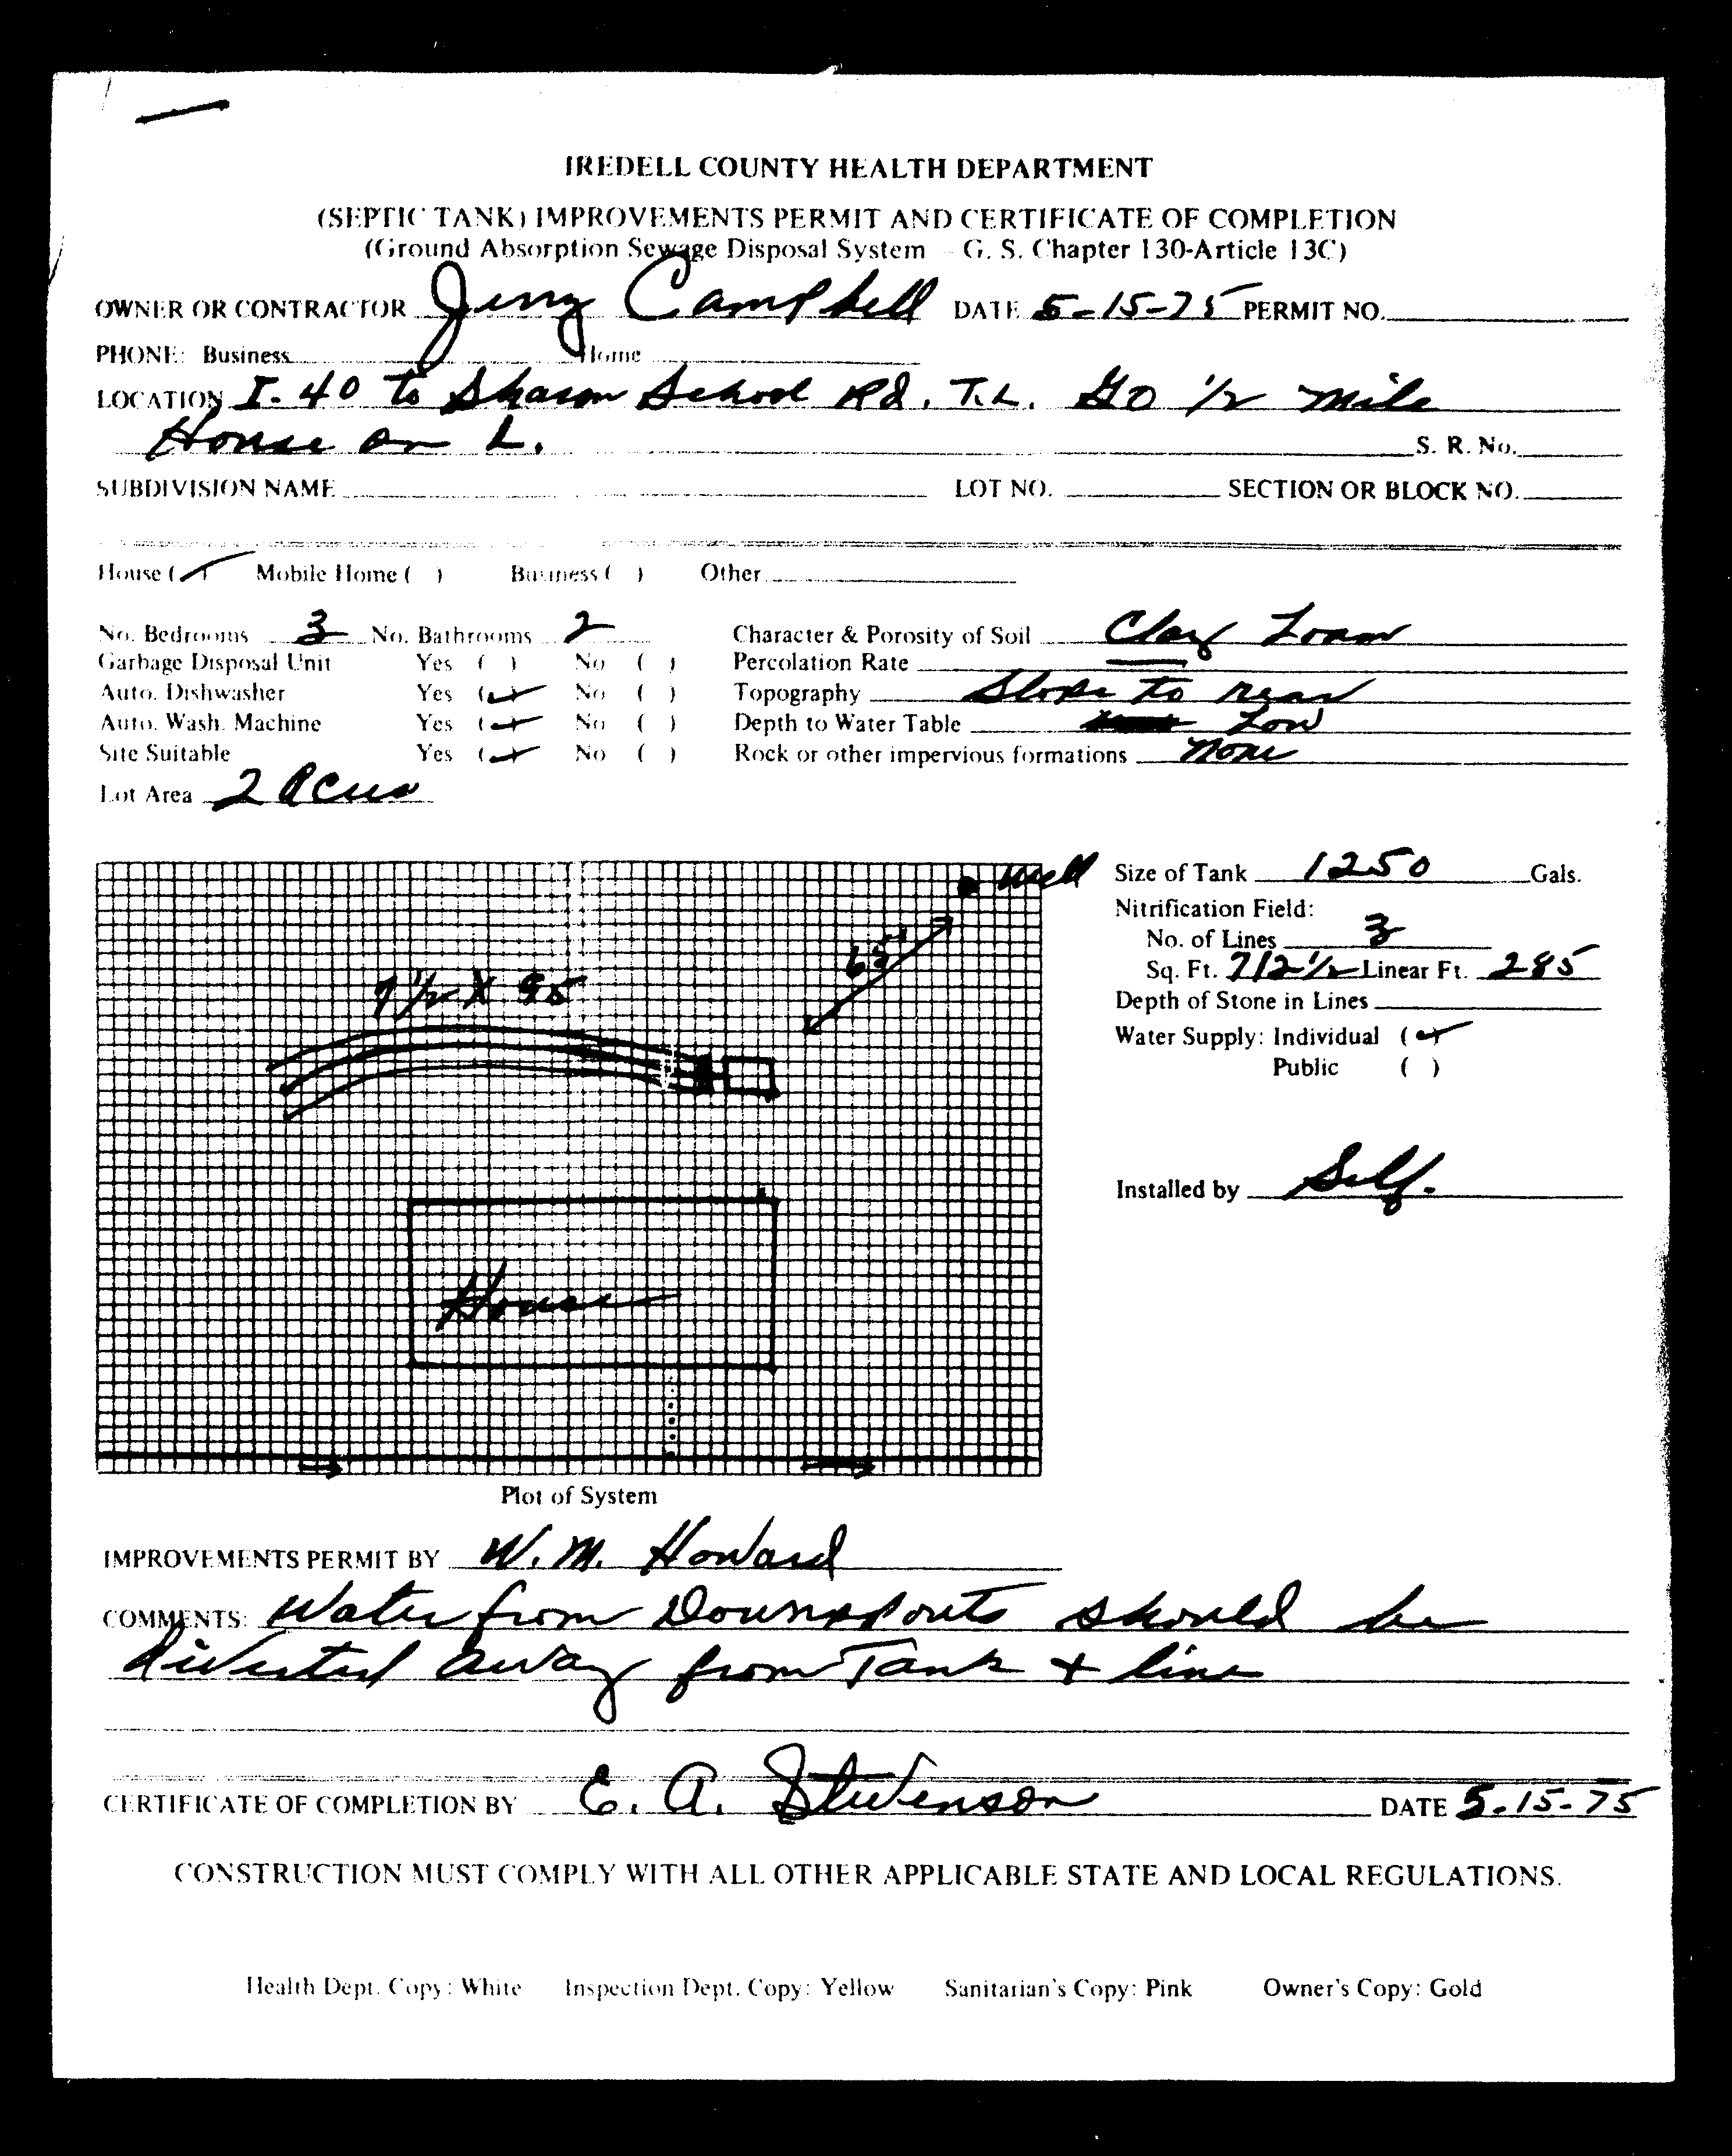 IREDELL COUNTY HEALTH DEPARTMENT
(SEPTIC TANK) IMPROVEMENTS PERMIT AND CERTIFICATE OF COMPLETION
(Ground Absorption Sewage Disposal System - G. S. Chapter 130-Article 13C)
OWNER OR CONTRACTOR Jerry Campbell DATE 5-15-75 PERMIT NO.
PHONE: Business Home
LOCATION I-40 to Sharon School Rd. T.L. Go 1/2 mile
House on L. S. R. No.
SUBDIVISION NAME LOT NO. SECTION OR BLOCK NO.
House (✓) Mobile Home ( ) Business ( ) Other
No. Bedrooms 3 No. Bathrooms 2 Character & Porosity of Soil Clay Loam
Garbage Disposal Unit Yes ( ) No ( ) Percolation Rate —
Auto. Dishwasher Yes (✓) No ( ) Topography Slope to rear
Auto. Wash. Machine Yes (✓) No ( ) Depth to Water Table Low
Site Suitable Yes (✓) No ( ) Rock or other impervious formations none
Lot Area 2 Acres
Well
65'
7 1/2 X 95
House
Plot of System
Size of Tank 1250 Gals.
Nitrification Field:
No. of Lines 3
Sq. Ft. 712 1/2 Linear Ft. 285
Depth of Stone in Lines
Water Supply: Individual (✓)
Public ( )
Installed by Self.
IMPROVEMENTS PERMIT BY W. M. Howard
COMMENTS: Water from Downspouts should be
diverted away from Tank + line
CERTIFICATE OF COMPLETION BY E. A. Stevenson DATE 5-15-75
CONSTRUCTION MUST COMPLY WITH ALL OTHER APPLICABLE STATE AND LOCAL REGULATIONS.
Health Dept. Copy: White Inspection Dept. Copy: Yellow Sanitarian's Copy: Pink Owner's Copy: Gold